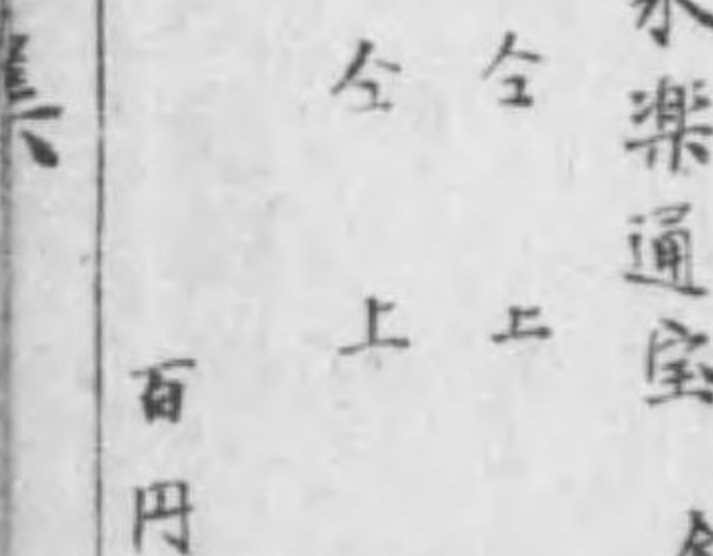 永楽通宝
仝上
仝上
百円